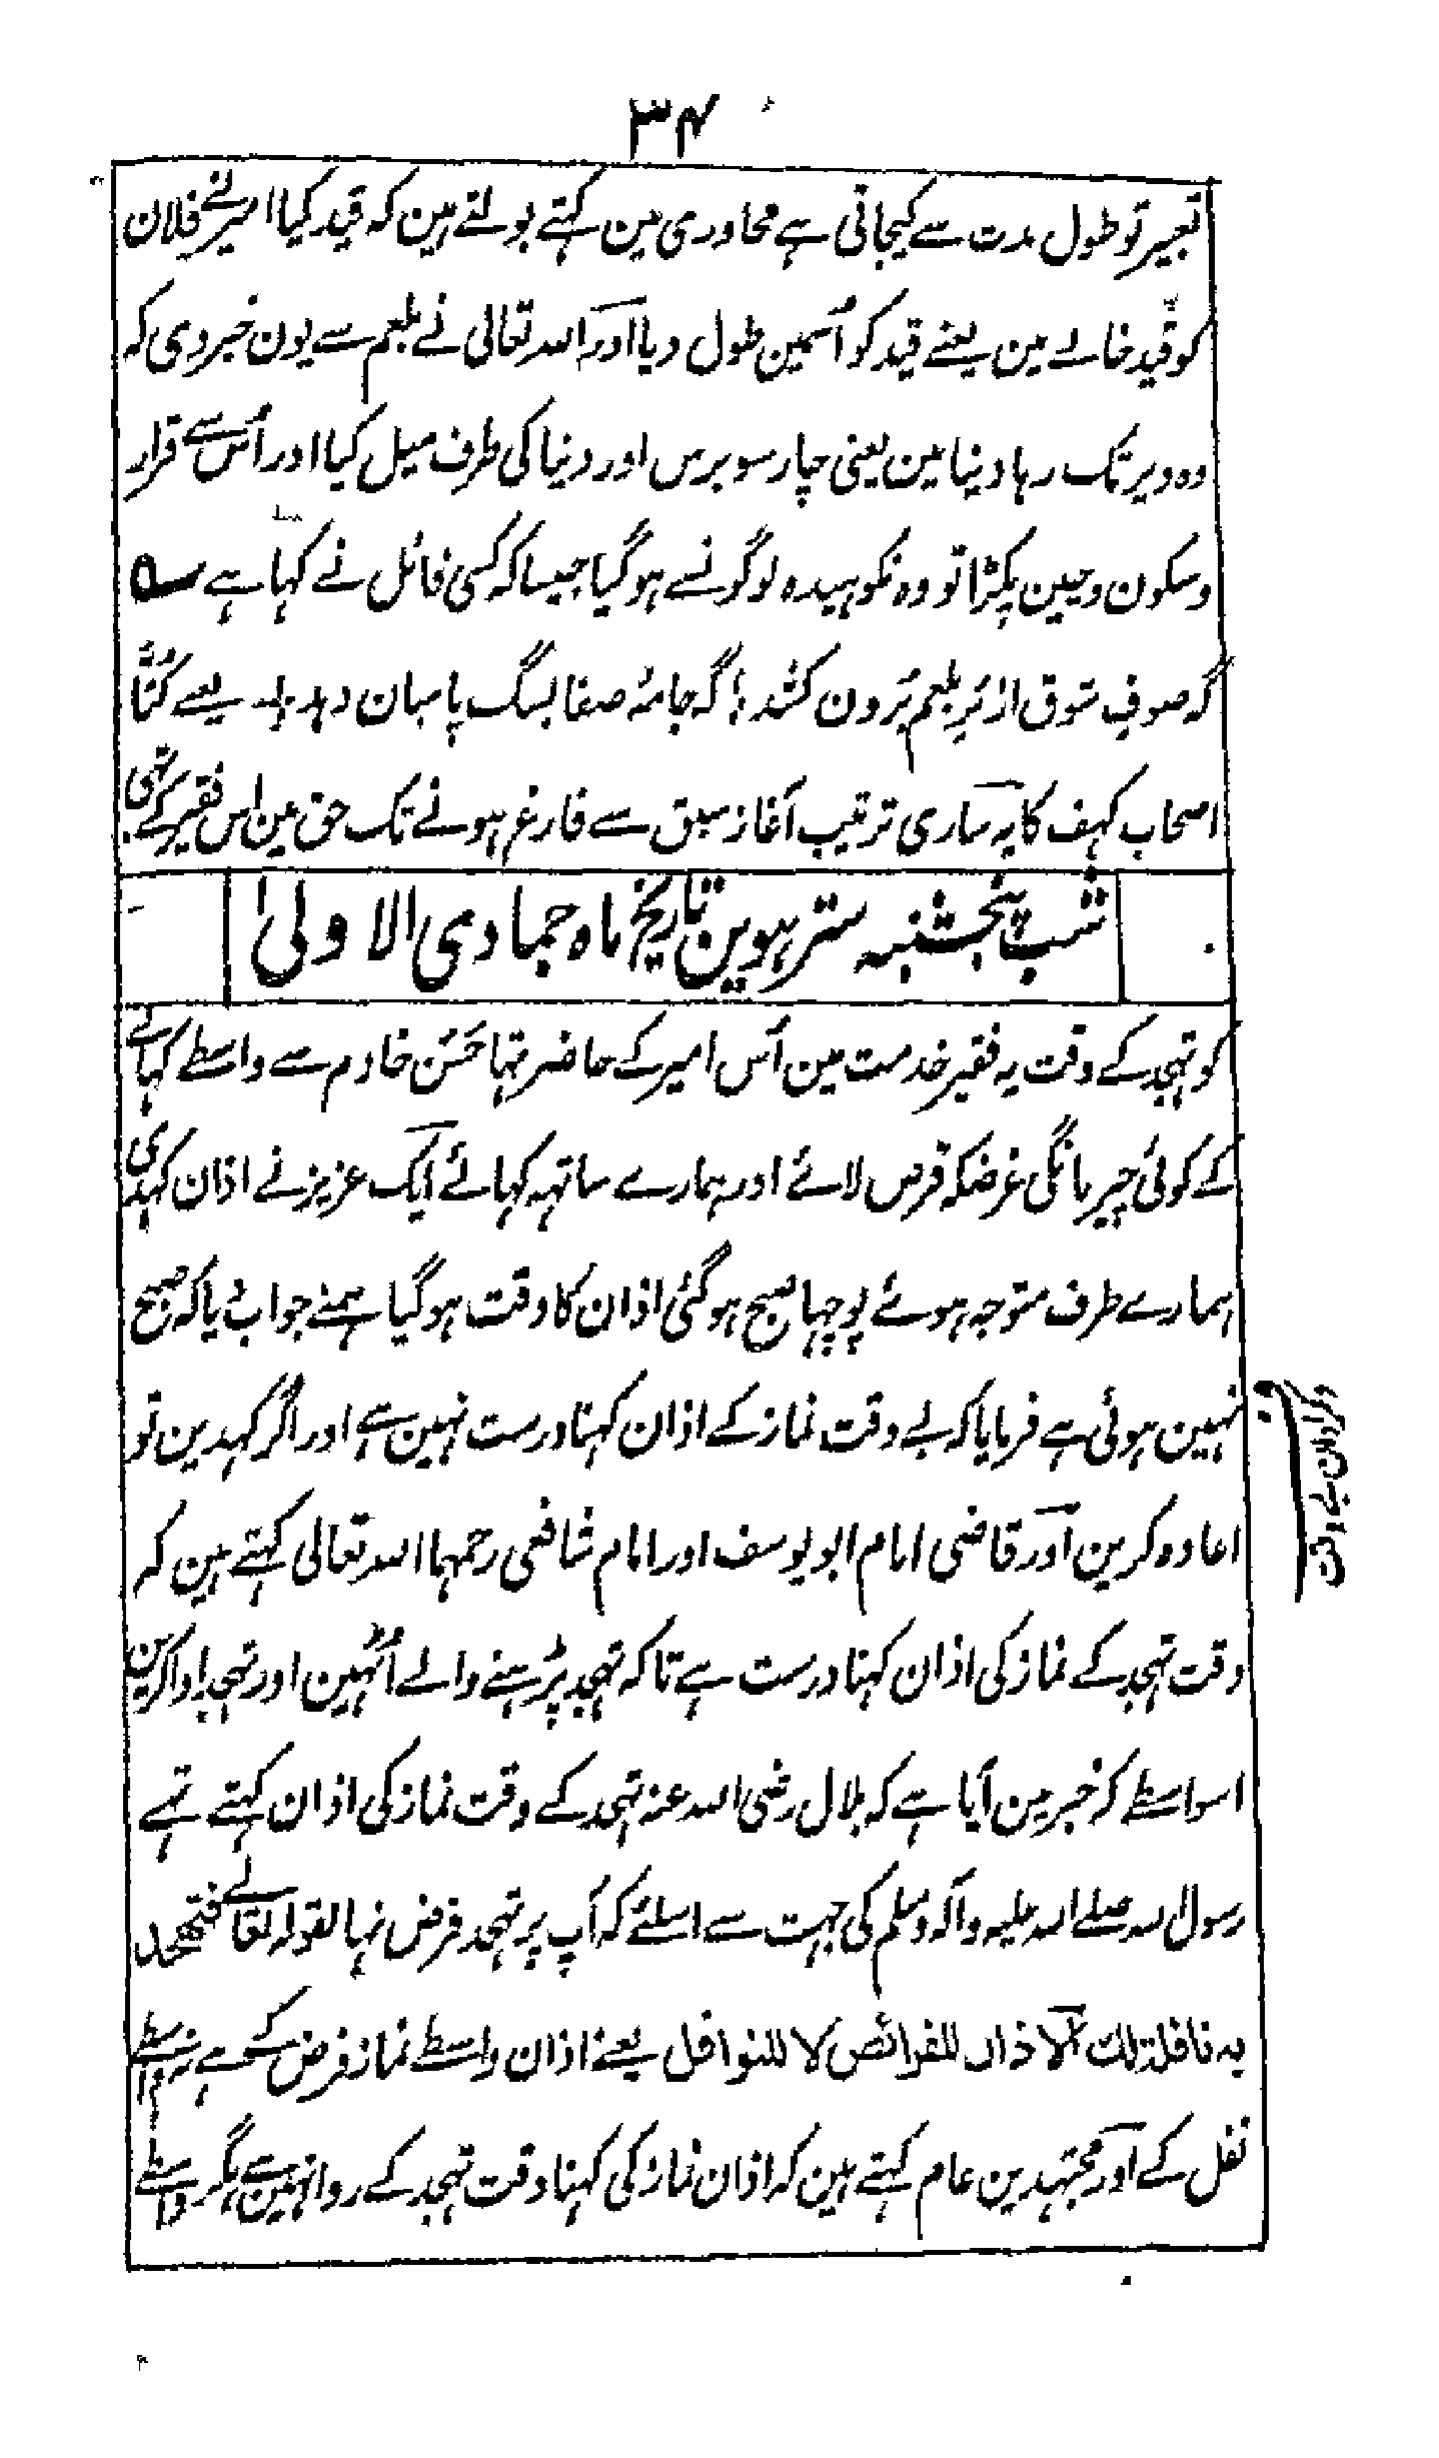 ۳۴
تعبیر تو طول مدت سے کیجاتی ہے محاوری مین کہتے بولتے ہین کہ قید کیا امیر نے فلان
کو قید خانے مین یعنے قید کو اُسمین طول دیا اور اللہ تعالی نے بلعم سے یون خبر دی کہ
وہ دیر تک رہا دنیا مین یعنی چار سو برس اور دنیا کی طرف میل کیا اور اُس سے قرار
و سکون و چین پکڑا تو وہ نکوہیدہ لوگونسے ہو گیا جیسا کہ کسی قائل نے کہا ہے ؎
گہ صوفِ شوق از برِ بلعم برون کشد ؛ گہ جامۂ صفا بسگ پاسبان دہد یعنے کتّا
اصحاب کہف کا یہ ساری ترتیب آغاز سبق سے فارغ ہونے تک حق مین اس فقیر کے تہی
شب پنجشنبہ سترہوین تاریخ ماہ جمادی الاولیٰ
کو تہجد کے وقت یہ فقیر خدمت مین اُس امیر کے حاضر تہا حَسَن خادم سے واسطے کہانے
کے کوئی چیز مانگی غرضکہ قرص لائے اور ہمارے ساتہہ کہائے ایک عزیز نے اذان کہدی
ہمارے طرف متوجہ ہوئے پوچہا صبح ہو گئی اذان کا وقت ہو گیا ہمنے جواب دیا کہ صبح
نہین ہوئی ہے فرمایا کہ بے وقت نماز کے اذان کہنا درست نہین ہے اور اگر کہدین تو
ذکر اذان بے وقت
اعادہ کرین اور قاضی امام ابو یوسف اور امام شافعی رحمہما اللہ تعالی کہتے ہین کہ
وقت تہجد کے نماز کی اذان کہنا درست ہے تاکہ تہجد پڑہنے والے اُٹہین اور تہجد ادا کرین
اسواسطے کہ خبر مین آیا ہے کہ بلال رضی اللہ عنہ تہجد کے وقت نماز کی اذان کہتے تہے
رسول اللہ صلے اللہ علیہ وآلہ وسلم کی جہت سے اسلئے کہ آپ پر تہجد فرض تہا لقولہ تعالے فتھجد
بہ نافلۃ لک الاذان للفرائض لا للنوافل یعنے اذان واسطے نماز فرض کے ہے نہ واسطے
نفل کے اور مجتہدین عام کہتے ہین کہ اذان نماز کی کہنا وقت تہجد کے روا نہین ہے مگر واسطے